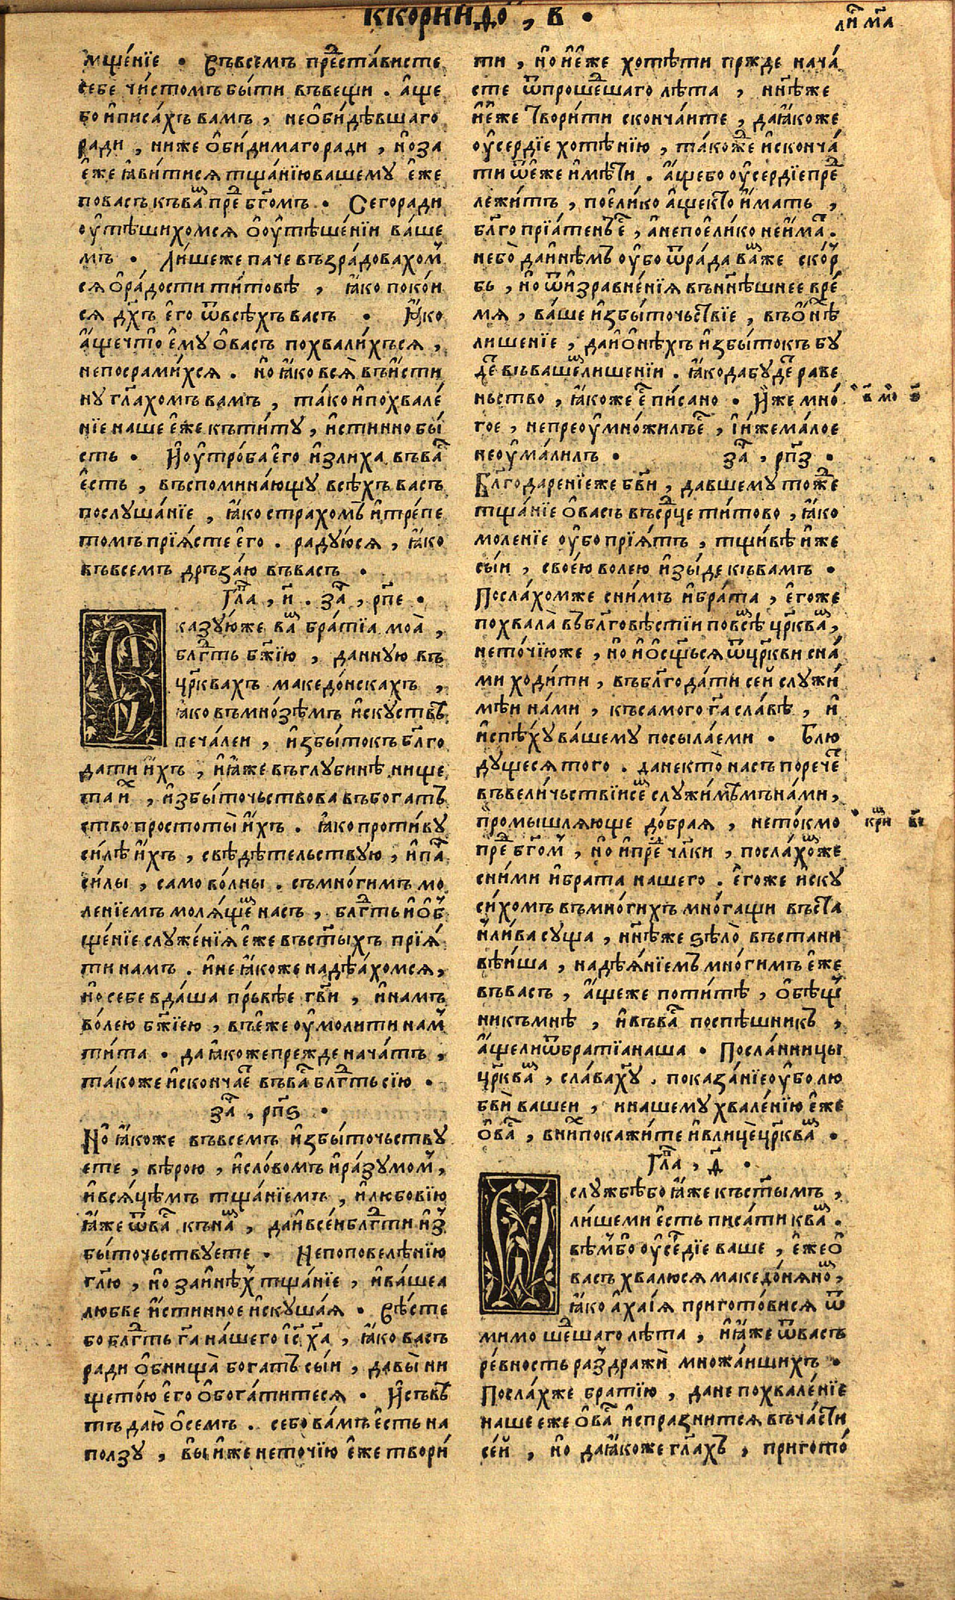 ККОРИНДО, в҃ •
ли҃ м҃а
мще́нїе • Въвсемъ предста́висте
себе чи́стомъ бы́ти въвещи . А́ще
бо и҆писа́хъ вамъ , необи́дѣвшаго
ради , ниже ѻ҆би́димаго ради , но҆ за
е҆же ꙗ҆ви́тися тща́нїю вашему е҆же
по васъ къва̑ пре бг҃омъ • Сего ради
оу҆тѣши́хомся ѻ҆оу҆тѣше́нїи ва́ше
мъ • Ли́шеже паче възра́довахом
ся ѻ҆ра́дости ти́товѣ , ꙗ҆ко поко́и
ся дх҃ъ е҆го ѿвсѣ́хъ васъ • Ꙗ҆ко
а҆ще что̀ е҆му ѻ҆васъ похвали́хъся ,
непосрами́хся . но҆ ꙗ҆ко вся̀ въи҆сти
ну гл҃ахомъ вамъ , та́ко и҆похвале́
нїе наше е҆же къти́ту , и҆стинно бы́
сть • И҆оу҆тро́ба е҆го и҆злиха въва
е҆сть , въспомина́ющу всѣ́хъ васъ
послуша́нїе , ꙗ҆ко страхомъ и҆тре́пе
томъ прїя́сте е҆го . ра́дуюся , ꙗ҆ко
въвсемъ дръза́ю въвасъ •
Гла , и҃ . за , рп҃е •
казу́юже ва братїа моа̀ ,
блг҃ть бж҃їю , данную въ
цр҃квахъ македо́нскахъ ,
ꙗ҆ко въмно́зѣмъ и҆скуствѣ
печа́леи , и҆збы́токъ блг҃о
да́ти и҆хъ , и҆ꙗ҆же въглубинѣ нище
та и҆х , и҆збы́точьствова въбога́тъ
ство простоты̀ и҆хъ . ꙗ҆ко против́у
си́лѣ и҆хъ , свѣдѣтельствую , и҆па
си́лы , само во́лны . съмно́гимъ мо
ле́нїемъ моля́ще насъ , блг҃ть и҆ѻ҆б
ще́нїе служе́нїя е҆же въст҃ы́хъ прїя́
ти намъ . и҆не ꙗ҆коже надѣ́ахомся ,
но҆ себе вда́ша пр́ьвѣе гв҃и , и҆намъ
во́лею бж҃їею , въе҆же оу҆моли́ти нам
ти́та • да ꙗ҆коже пре́жде нача́тъ ,
та́коже и҆сконча́е въва блг҃ть сїю •
за , рп҃ѕ •
Но҆ ꙗ҆коже въвсемъ и҆збы́точьству
ете , вѣ́рою , и҆сло́вомъ и҆ра́зумом ,
и҆вся́цѣмъ тща́нїемъ , и҆любо́вїю
ꙗ҆же ѿва къна , да и҆всеи блг҃ти и҆з
бы́точьствуете • Непоповеле́нїю
гл҃ю , но҆ за и҆нѣх тща́нїе , и҆ва́шеа
любве и҆стинное и҆скушая • Вѣ́сте
бо блг҃ть г҃а на́шего і҆с х҃а , ꙗ҆ко васъ
ради ѻ҆бнища̀ богатъ сы́и , да вы̀ ни
щето́ю е҆го ѻ҆бога́титеся • И҆съвѣ
тъ даю̀ ѻ҆семъ . се бо ва́мъ е҆сть на
ползу , вы и҆же неточїю е҆же твори́
ти , но҆ и҆е҆же хотѣ́ти прж̾де нача́
сте ѿпроше́шаго лѣ́та , нн҃ѣже
и҆е҆же твори́ти сконча́ите , да ꙗ҆коже
оу҆се́рдїе хотѣ́нїю , та́коже и҆сконча́
ти ѿе҆же и҆мѣ́ти . А҆ще бо оу҆сердїе пре
лежи́тъ , поели́ко а҆ще кто̀ и҆мать ,
бл҃го прїа́тенъ е҆ , а҆непоели́ко неи́ма .
небо̀ да и҆нѣмъ оу҆бо ѿра́да ва́же скор
бь , но҆ ѿи҆зравне́нїя въны́нѣшнее вре́
мя , ва́ше и҆збы́точьствїе , въѻ҆нѣ
лише́нїе , да и҆ѻ҆нѣ́хъ и҆збы́токъ бу
де въва́ше лише́нїи . ꙗ҆кода буде раве
ньство , ꙗ҆коже е҆ пи́сано • И҆же мно́
гое , непреоу҆мно́жилъе , і҆ иже ма́лое
неоу҆ма́лилъ • за , рп҃з •
Блг҃одаре́нїе же бв҃и , да́вшему то́же
тща́нїе ѻ҆васъ въср҃це ти́тово , ꙗ҆ко
моле́нїе оу҆бо прїя́тъ , тщи́вѣ и҆же
сы́и , свое́ю во́лею и҆зы́де къвамъ •
Посла́хомже сни́мъ и҆бра́та , е҆гоже
похвала̀ въблг҃овѣ́стїи повсѣ цр҃ква ,
неточї́юже , но҆ и҆ѻ҆сщься ѿцр҃кви сна́
ми ходи́ти , въблг҃ода́ти сей служи́
мѣи на́ми , късамого г҃а сла́вѣ , и҆
и҆спѣ́ху ва́шему посыла́еми • Блю
ду́щеся того . дане́кто насъ порече
въвели́чьствїи се служи́мѣмъ на́ми ,
промышля́юще до́брая , нето́кмо
пре бг҃ом , но҆ и҆пре чл҃ки , посла́хоже
сни́ми и҆брата нашего . е҆гоже и҆ску
си́хомъ въмно́гихъ мно́гащи въста
нли́ва су́ща , нн҃ѣже ѕѣло̀ въстани
вѣ́иша , надѣ́янїемъ мно́гимъ е҆же
въвасъ , а҆щеже поти́тѣ , ѻ҆бѣ́щ
никъ мнѣ , и҆въва поспѣшникъ ,
а҆щели ѿбратїа наша • Посла́нницы
цр҃ква , сла́ва ху . показа́нїе оу҆бо лю
бви вашеи , и нашему хвале́нїю е҆же
ѻ҆ва , вни покажи́те и҆влице цр҃ква •
Гла , ѳ҃ •
ѻ҆ в҃ мо в҃
кри в҃і
службѣ бо ꙗ҆же къст҃ымъ ,
ли́ше ми е҆сть писа́ти ква .
вѣ́мбо оу҆се́рдїе ваше , е҆же ѻ҆
васъ хвалю́ся македо́няно ,
ꙗ҆ко а҆ха́їя пригото́вися ѿ
мимо ше́шаго лѣ́та , и҆ꙗ҆же ѿвасъ
ре́вность раздражѝ множа́ишихъ •
Посла́хже бра́тїю , дане похвале́нїе
наше еже ѻ҆ва и҆спразнится въча́сти
се́й , но҆ да ꙗ҆коже гл҃ахъ , пригото́